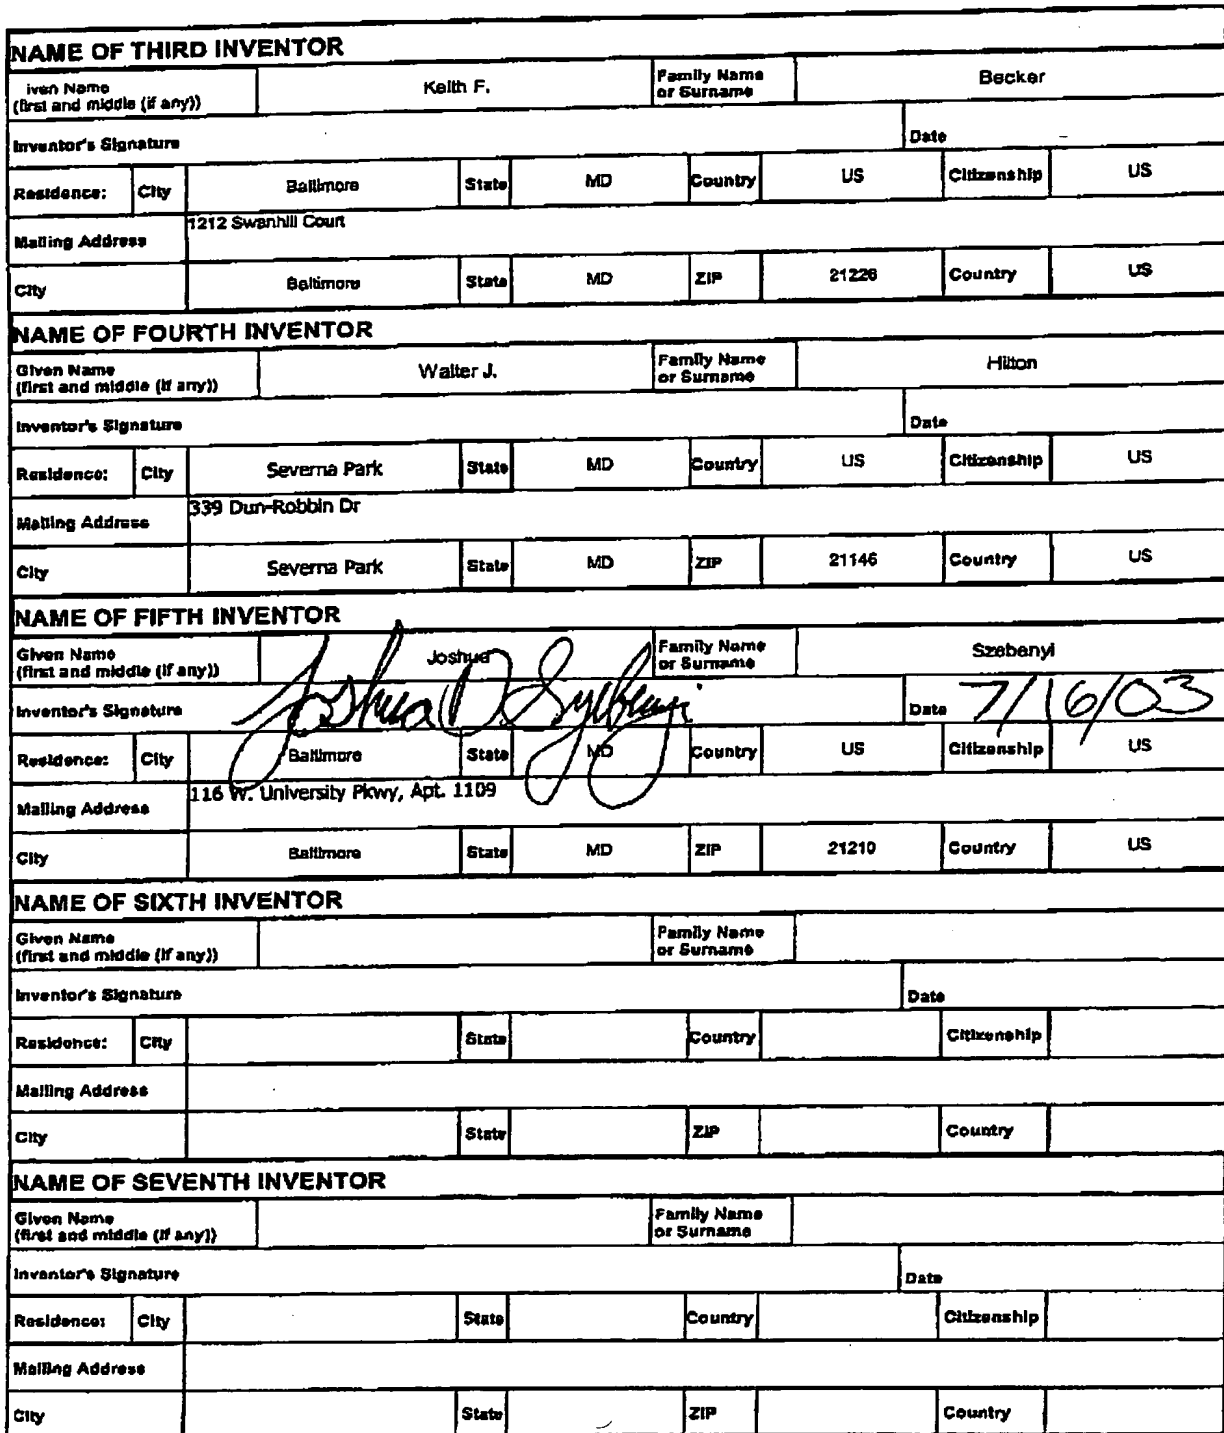 NAME OF THIRD INVENTOR
iven Name
(first and middle (if any)) Keith F. Family Name
or Surname Becker
Inventor's Signature Date
Residence: City Baltimore State MD Country US Citizenship US
Mailing Address 1212 Swanhill Court
City Baltimore State MD ZIP 21226 Country US
NAME OF FOURTH INVENTOR
Given Name
(first and middle (if any)) Walter J. Family Name
or Surname Hilton
Inventor's Signature Date
Residence: City Severna Park State MD Country US Citizenship US
Mailing Address 339 Dun-Robbin Dr
City Severna Park State MD ZIP 21146 Country US
NAME OF FIFTH INVENTOR
Given Name
(first and middle (if any)) Joshua Family Name
or Surname Szebenyi
Inventor's Signature Joshua D Szebenyi Date 7/16/03
Residence: City Baltimore State MD Country US Citizenship US
Mailing Address 116 W. University Pkwy, Apt. 1109
City Baltimore State MD ZIP 21210 Country US
NAME OF SIXTH INVENTOR
Given Name
(first and middle (if any)) Family Name
or Surname
Inventor's Signature Date
Residence: City State Country Citizenship
Mailing Address
City State ZIP Country
NAME OF SEVENTH INVENTOR
Given Name
(first and middle (if any)) Family Name
or Surname
Inventor's Signature Date
Residence: City State Country Citizenship
Mailing Address
City State ZIP Country